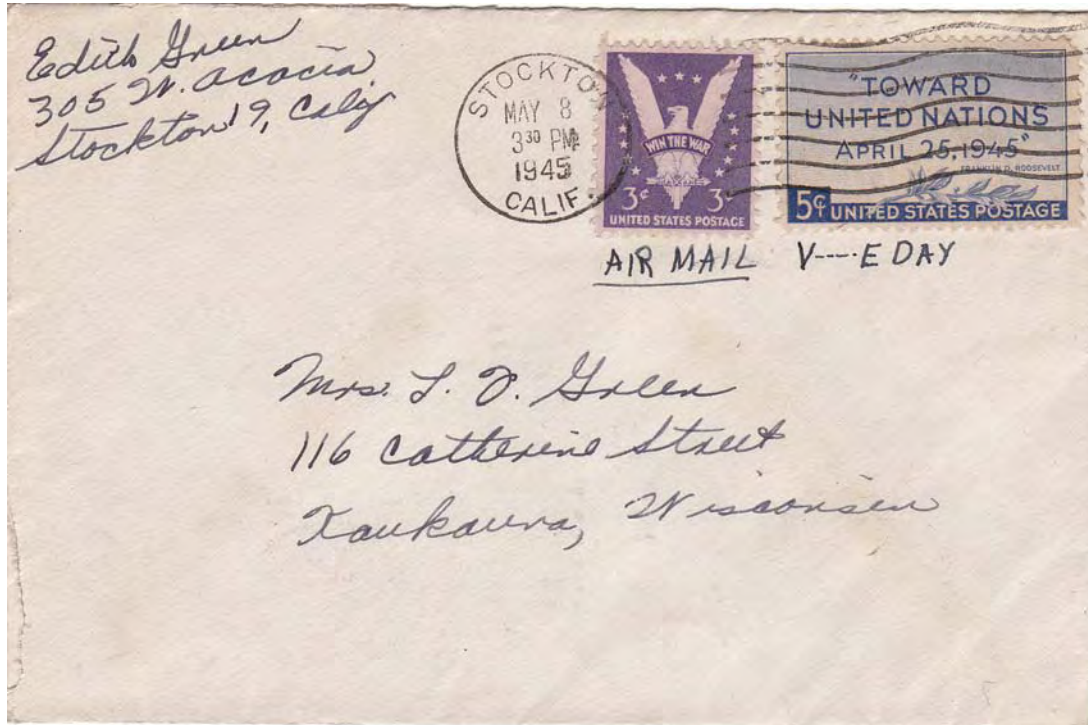 Edith Green
305 W. Acacia
Stockton 19, Calif
STOCKTON
MAY 8
3 30 PM
1945
CALIF.
WIN THE WAR
3¢ 3¢
UNITED STATES POSTAGE
"TOWARD
UNITED NATIONS
APRIL 25, 1945"
FRANKLIN D. ROOSEVELT
5¢ UNITED STATES POSTAGE
AIR MAIL V----E DAY
Mrs. L. D. Green
116 Catherine Street
Kaukauna, Wisconsin